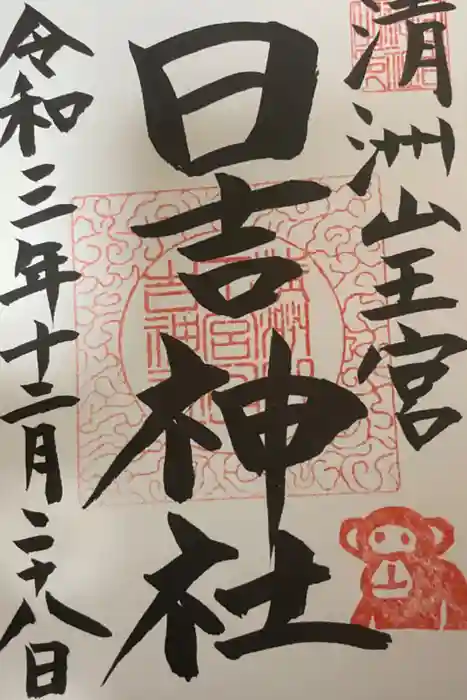 清洲山王宮
日吉神社
令和三年十二月二十八日
山